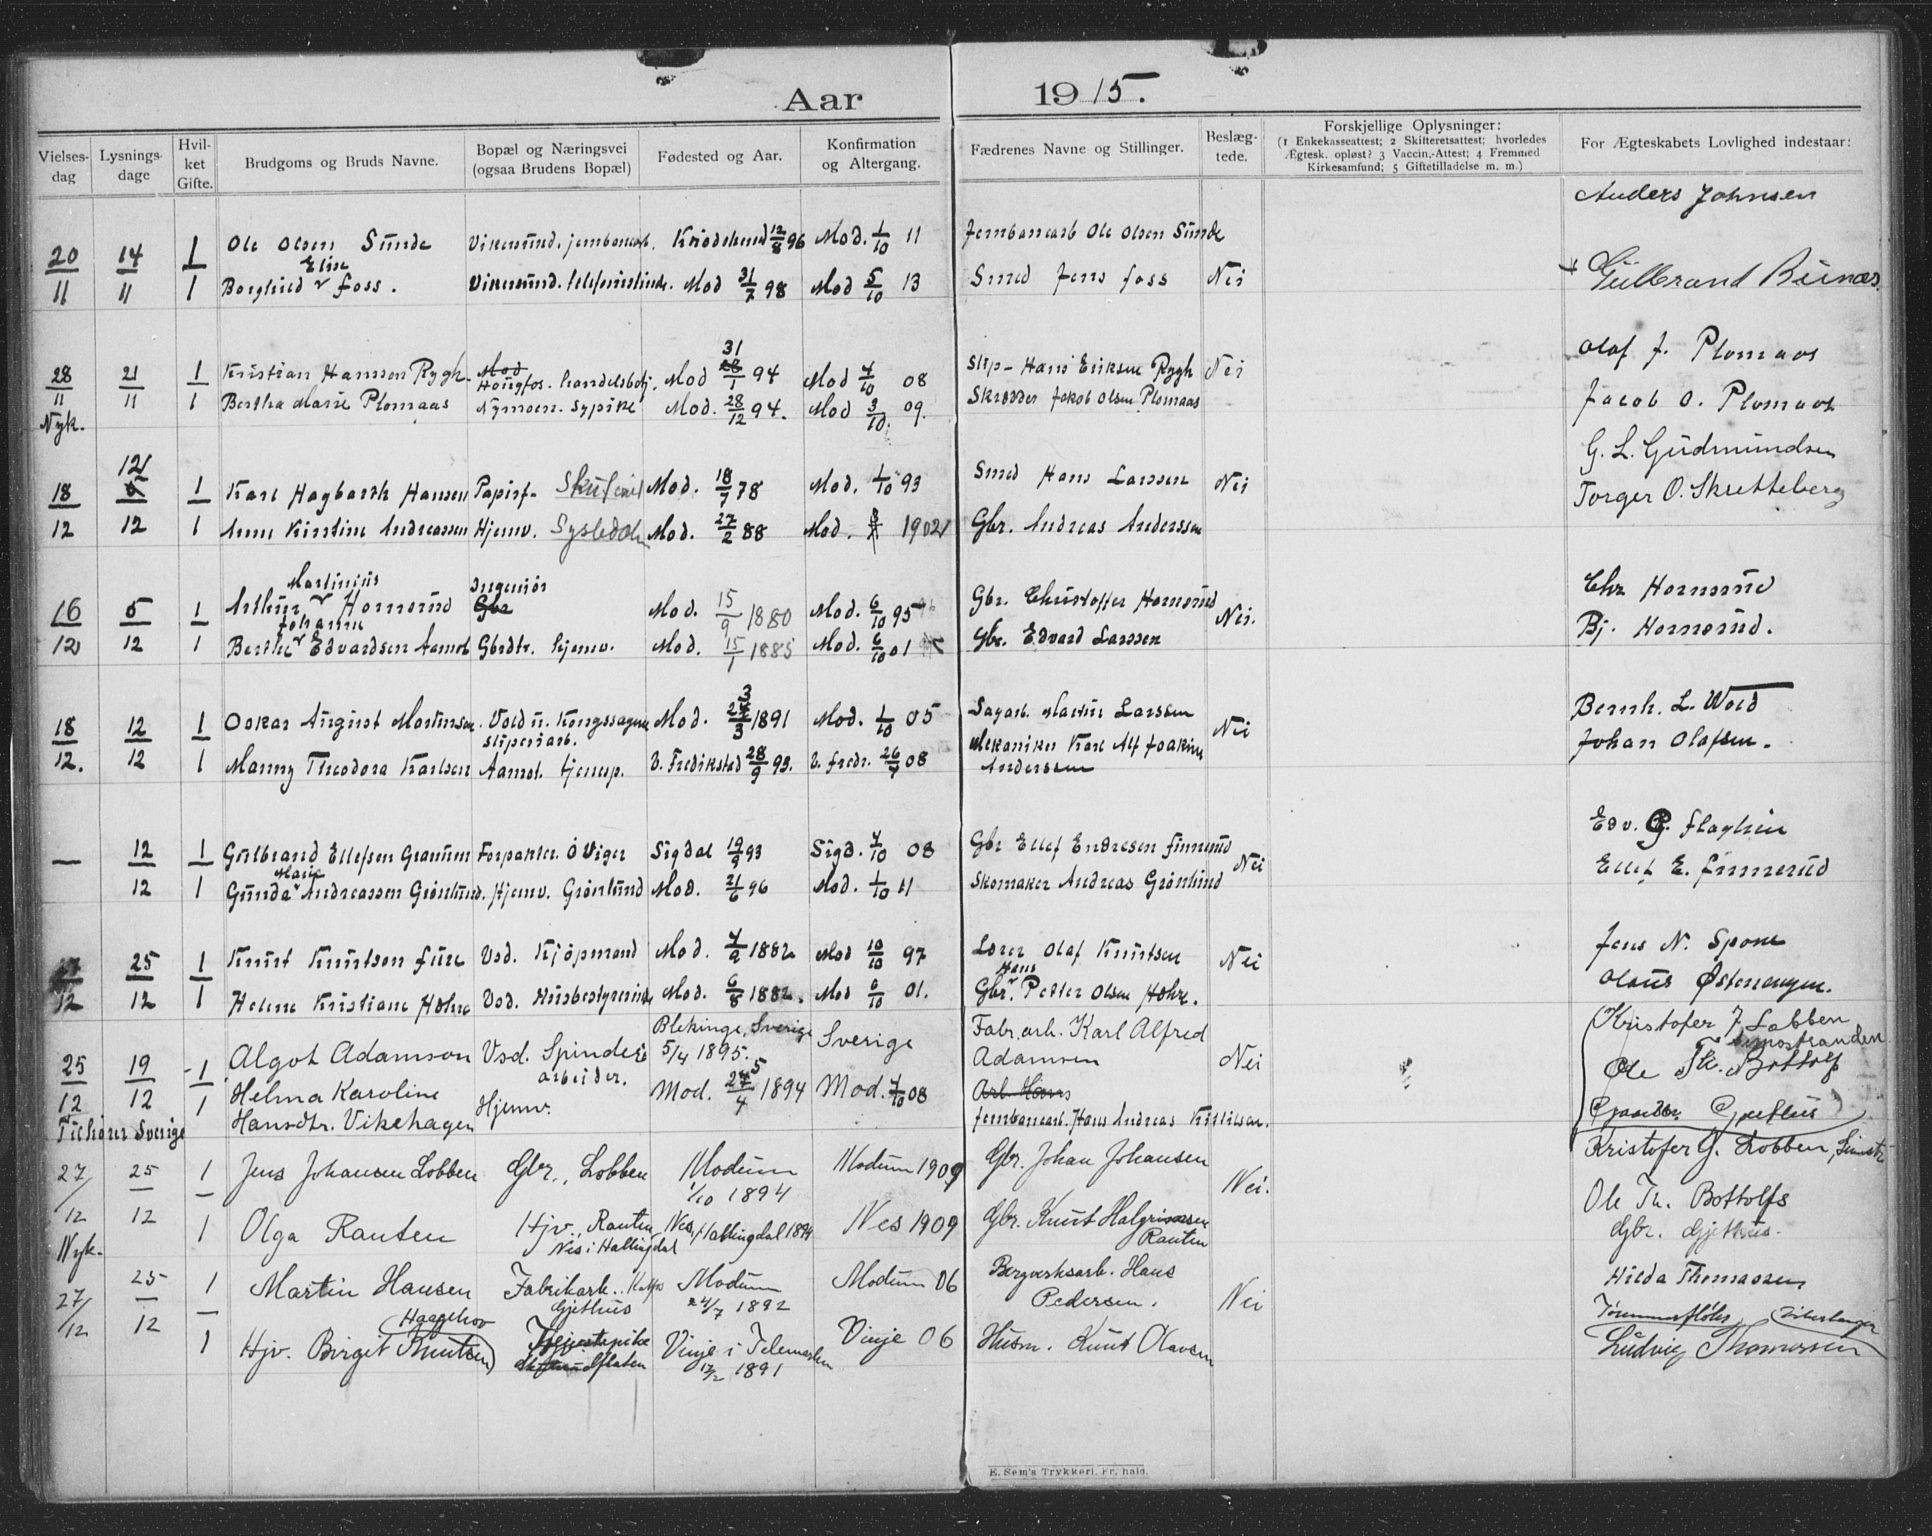 Aar 1915.
Vielses-dag | Lysnings-dage | Hvil-ket Gifte. | Brudgoms og Bruds Navne. | Bopæl og Næringsvei (ogsaa Brudens Bopæl) | Fødested og Aar. | Konfirmation og Altergang. | Fædrenes Navne og Stillinger. | Beslæg-tede. | Forskjellige Oplysninger: (1 Enkekasseattest; 2 Skifteretsattest; hvorledes Ægtesk. opløst? 3 Vaccin.-Attest; 4 Fremmed Kirkesamfund; 5 Giftetilladelse m. m.) | For Ægteskabets Lovlighed indestaar:
Anders Johnsen
20/11 14/11 1 Ole Olsen Sunde Vikersund. jernbanearb. Krødsherad 12/8 96 Mod. 1/10 11 Jernbanearb Ole Olsen Sunde
Elin
1 Borghild Foss. Vikersund. telefonistinde. Mod 31/7 98 Mod 5/10 13 Smed Jens Foss Nei Gulbrand Bunæs.
Olaf J. Plomaas
28/11 21/11 1 Kristian Hansen Rygh. Mod Hougfos. handelsbetj. Mod 31/1 94 Mod 4/10 08 Slip- Hans Eriksen Rygh Nei
1 Bertha Marie Plomaas Nymoen. sypike Mod. 28/12 94. Mod 3/10. 09. Skrædder Jakob Olsen Plomaas Jacob O. Plomaas
Nyk.
G. L. Gudmundsen
18/12 12/12 1 Karl Hagbarth Hansen Papirf- Mod. 18/7 78 Mod. 1/10 93 Smed Hans Larssen Nei Torger O. Skretteberg
1 Anne Kirstine Andreassen Hjemv. Mod. 27/2 88 Mod. 1902 Gbr. Andreas Anderssen
Martinius Ingeniør Chr Hornerud
16/12 5/12 1 Arthur Hornerud Gbr Mod. 15/9 1880 Mod. 6/10 95 Gbr. Christoffer Hornerud Nei.
Johanne
1 Berthe Edvardsen Aamot Gbrdtr. hjemv. Mod. 15/1 1885 Mod. 6/10 01 Gbr. Edvard Larssen Bj. Hornerud.
18/12. 12/12 1 Oskar August Martinsen. Vold u. Kongssagene sliperiarb. Mod. 1891 Mod. 1/10 05 Sagarb. Martin Larssen Nei Bernh. L. Wold
1 Manny Theodora Karlsen Aamot. tjenep. V. Fredrikstad 28/9 93. V. Fredr. 26/4 08 Mekaniker Karl Alf Joakim Anderssen Johan Olafsen.
Edv. G. Flaglien
— 12/12 1 Gulbrand Ellefsen Granum Forpakter. Ø Viger Sigdal 19/9 93 Sigd. 4/10 08 Gbr Ellef Endresen Finnerud Nei Ellef E. Finnerud
Marie
1 Gunda Andreassen Grønlund. Hjemv. Grønlund Mod. 21/6 96 Mod. 1/10 11 Skomaker Andreas Grønlund
Jens N. Spone
12 25/12 1 Knut Knutsen Fure Vsd. Kjøpmand Mod. 4/9 1882 Mod 10/10 97 Lærer Olaf Knutsen Nei
Hans
1 Helene Kristiane Høhre Vsd. Husbestyrerinde Mod. 6/8 1882. Mod 6/10 01. Gbr. Petter Olsen Høhre. Olaus Østenengen.
25/12 19/12 1 Algot Adamson Vsd. Spinderiarbeider. Blekinge, Sverige 5/4 1895. Sverige Fabr. arb. Karl Alfred Adamsen Nei Kristofer J. Lobben
Ole Th. Bottolf
1 Helma Karoline Hansdtr. Vikehagen Hjemv. Mod. 1894 Mod. 4/10 08 Jernbanearb. Hans Andreas Kittilsen.
Gjethus
27/12 25/12 1 Jens Johansen Lobben Gbr., Lobben Modum 1/10 1894 Modum 1909 Gbr. Johan Johansen Nei. Kristofer G. Lobben,
1 Olga Rauten Hjv., Rauten Nes i Hallingdal Nes, Hallingdal 1894 Nes 1909 Gbr. Knut Halgrimsen Rauten Ole Th. Bottolfs
Gbr. Gjethus.
Nyk.
27/12 25/12 1 Martin Hansen Fabrikarb. Gjethus Modum 24/7 1892 Modum 06 Bergverksarb. Hans Pedersen. Nei Hilda Thomassen
Haagehov
1 Hjv. Birgit Knutsen Vinje i Telemarken 17/2 1891 Vinje 06 Husm. Knut Olavsen Tømmerfløter
Ludvig Thomassen
E. Sem's Trykkeri, Fr. hald.